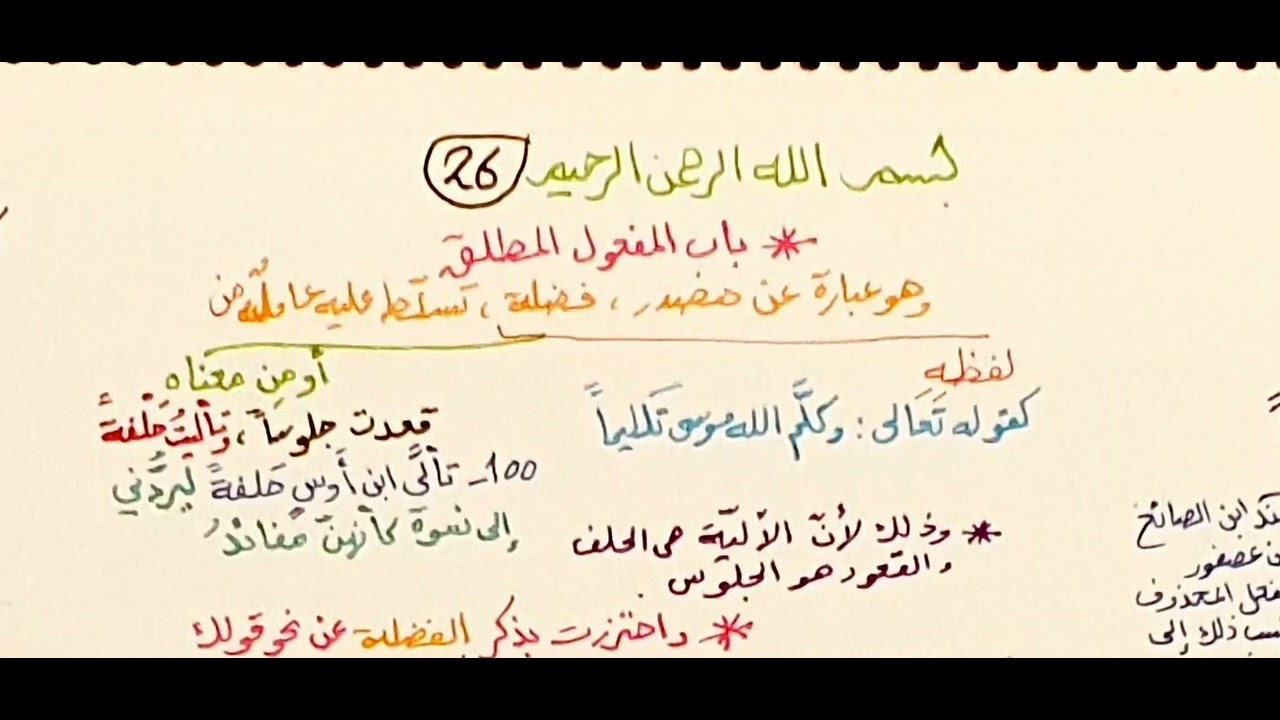 بسم الله الرحمن الرحيم 26
* باب المفعول المطلق
وهو عبارة عن مصدر، فضلة، تسلّط عليه عاملٌ من
لفظه
كقوله تَعَالى: وكلَّم الله موسى تكليماً
أو مِن معناه
قعدت جلوساً، وتأليتُ حَلْفةً
100- تألَّى ابن أَوسٍ حَلفةً ليردَّني
إلى نسوة كأنهنّ مفائدُ
* وذلك لأنّ الأليّة هي الحلف
والقعود هو الجلوس.
* واحترزت بذكر الفضلة عن نحو قولك
ابن الصائغ
عصفور
المحذوف
ذلك إلى